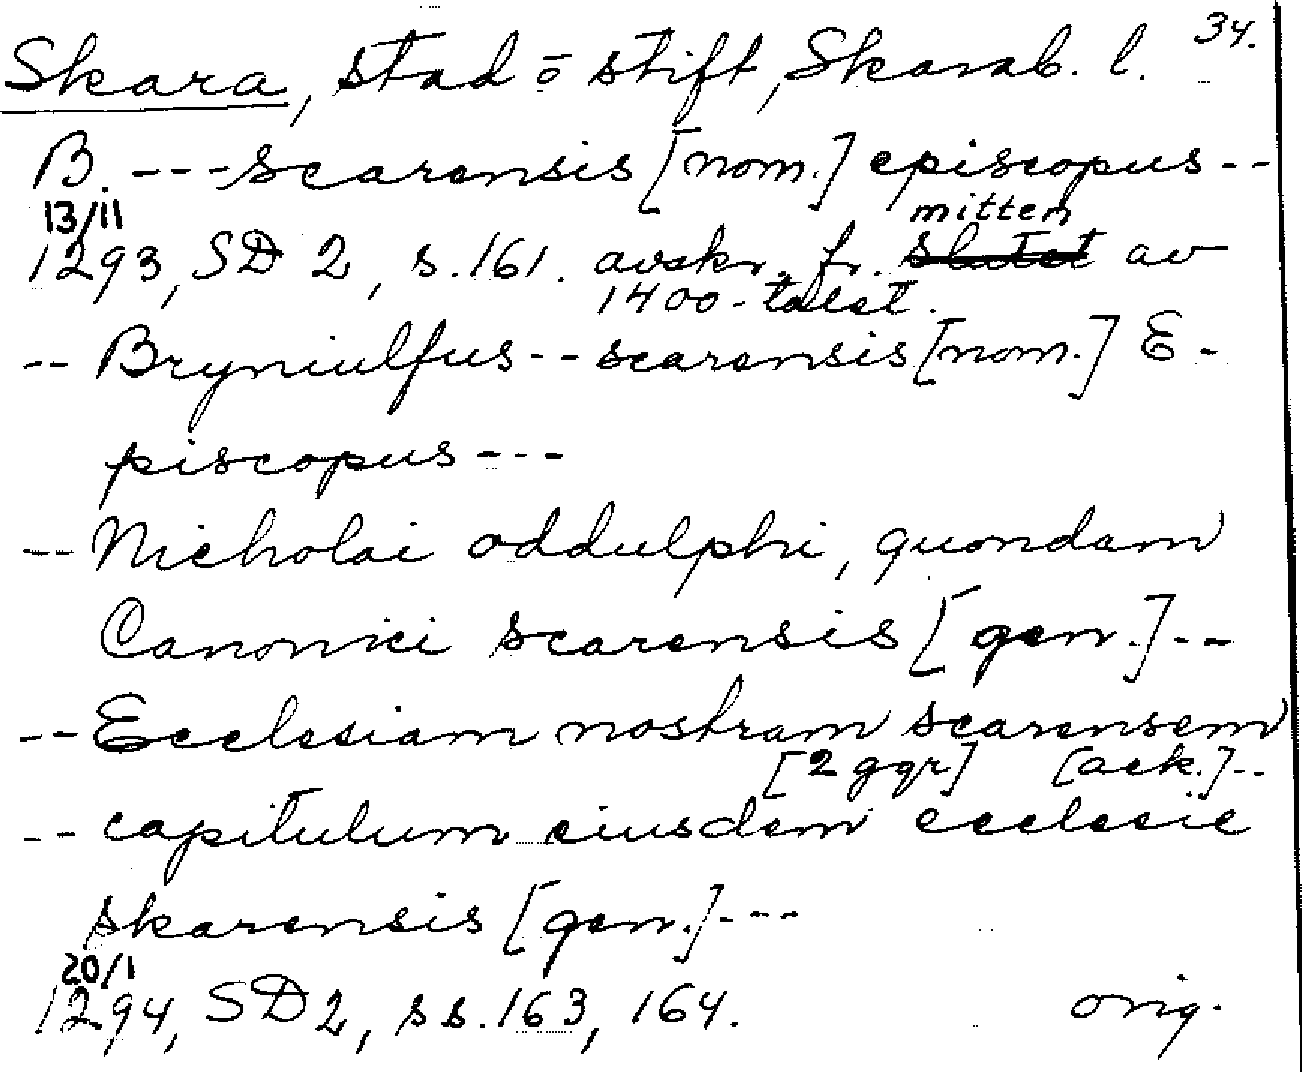 34.
Skara, stad o stift, Skarab. l.
B. --- scarensis [nom.] episcopus --
13/11 mitten
1293, SD 2, s. 161. avskr. fr. slutet av
1400-talet.
-- Bryniulfus -- scarensis [nom.] E-
piscopus ---
-- Nicholai oddulphi, quondam
Canonici scarensis [gen.] --
-- Ecclesiam nostram scarensem
[2 ggr] [ack.] --
-- capitulum eiusdem ecclesie
skarensis [gen.] ---
20/1
1294, SD 2, ss. 163, 164. orig.